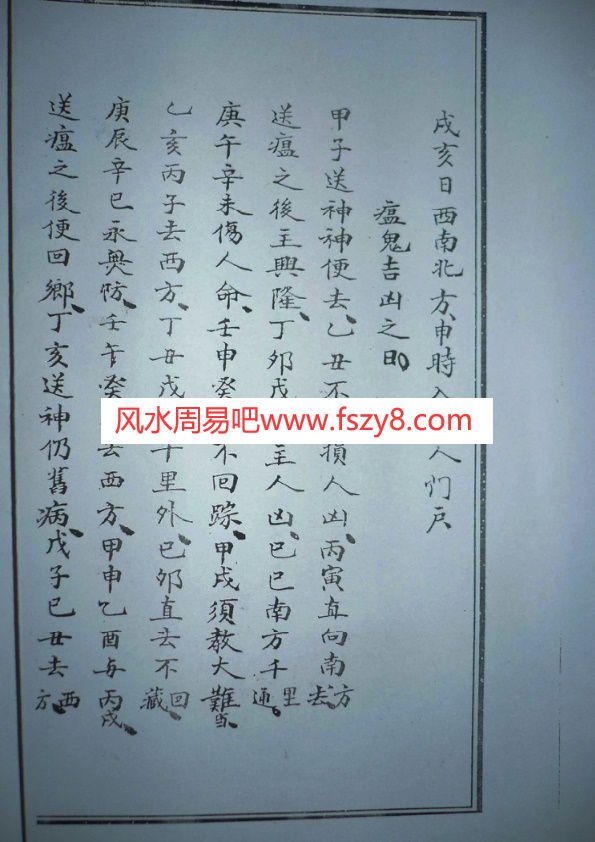 戌亥日西南北方、申時入 人门戶
瘟鬼吉凶之日
甲子送神神便去、乙丑不 損人凶、丙寅直向南方去、
送瘟之後主興隆、丁夘戊 主人凶、巳巳南方千里通。
庚午辛未傷人命、壬申癸 不回踪、甲戌須教大難當、
乙亥丙子去西方、丁丑戊 千里外、巳夘直去不回藏、
庚辰辛巳永無妨、壬午癸 去西方、甲申乙酉与丙戌、
送瘟之後便回鄉、丁亥送神仍舊病、戊子巳丑去西方、
风水周易吧www.fszy8.com